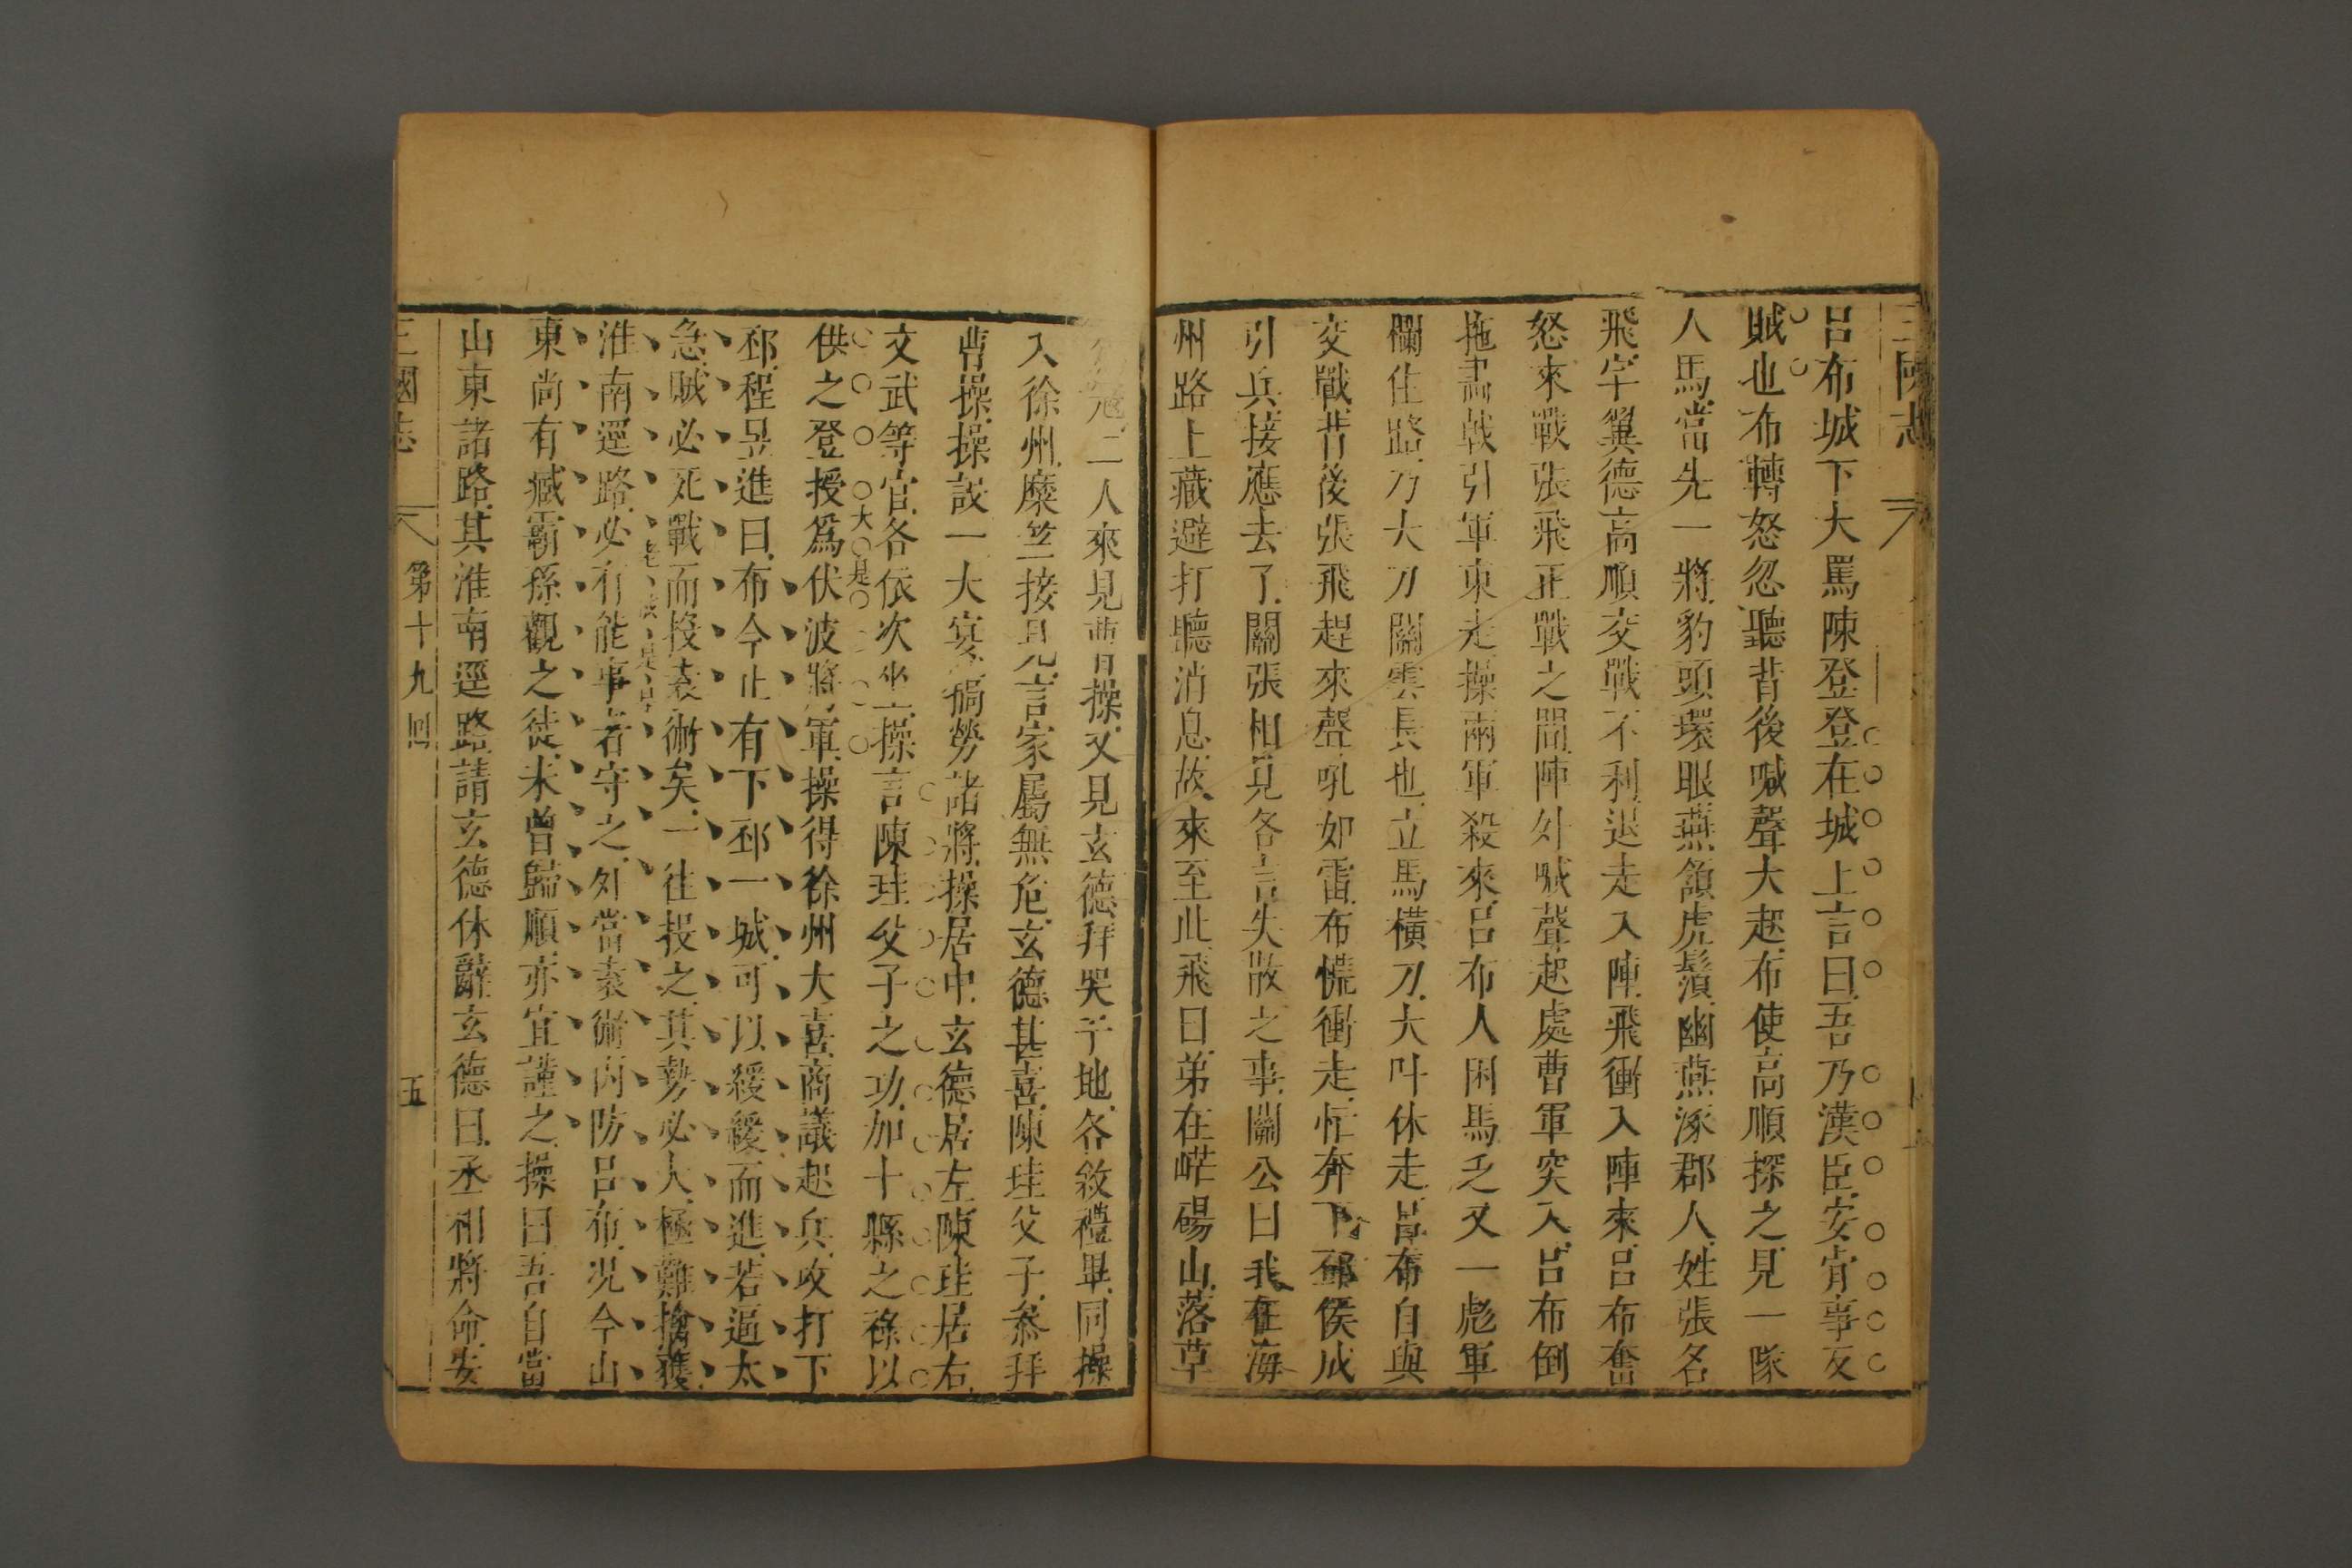 三國志
呂布城下大罵陳登登在城上言曰吾乃漢臣安肯事反
賊也布轉怒忽聽背後喊聲大起布使高順探之見一隊
人馬當先一將豹頭環眼燕頷虎鬚幽燕涿郡人姓張名
飛字翼德高順交戰不利退走入陣飛衝入陣來呂布奮
怒來戰張飛正戰之間陣外喊聲起處曹軍突入呂布倒
拖畵戟引軍東走操兩軍殺來呂布人困馬乏又一彪軍
欄住路乃大刀關雲長也立馬橫刀大叫休走呂布自與
交戰背後張飛趕來聲吼如雷布慌衝走忙奔下邳侯成
引兵接應去了關張相見各言失散之事關公曰我在海
州路上藏避打聽消息故來至此飛曰弟在硭碭山落草
二人來見曹操又見玄德拜哭于地各敘禮畢同操
入徐州糜竺接見言家屬無危玄德甚喜陳珪父子叅拜
曹操操設一大宴犒勞諸將操居中玄德居左陳珪居右
文武等官各依次坐操言陳珪父子之功加十縣之祿以
大是
供之登授爲伏波將軍操得徐州大喜商議起兵攻打下
邳程昱進曰布今止有下邳一城可以緩緩而進若逼太
急賊必死戰而投袁術矣一往投之其勢必大極難擒獲
老是
淮南逕路必有能事者守之外當袁術內防呂布况今山
東尚有臧霸孫觀之徒未曾歸順亦宜謹之操曰吾自當
山東諸路其淮南逕路請玄德休辭玄德曰丞相將命安
三國志 第十九回 五